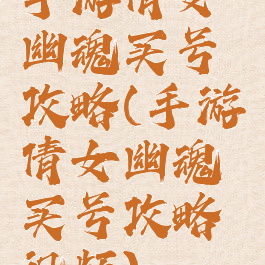 手游倩女
幽魂买号
攻略(手游
倩女幽魂
买号攻略
视频)